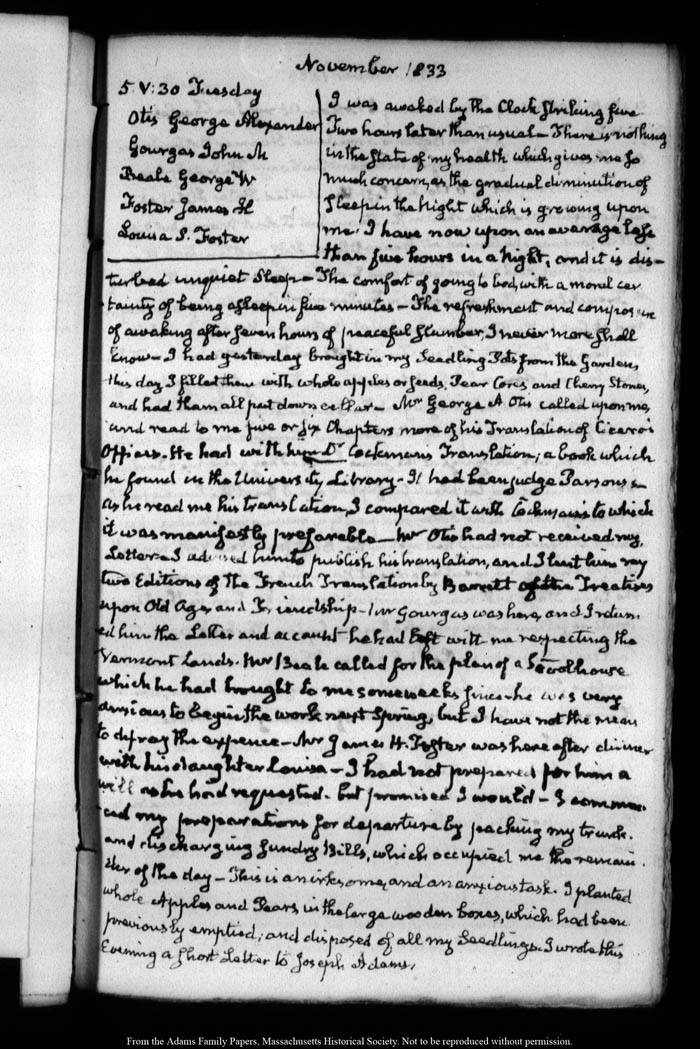 November 1833
5. V:30 Tuesday
Otis George Alexander
Gourgas John M
Beale George W
Foster James H
Louisa S. Foster
I was awaked by the Clock striking five
Two hours later than usual – There is nothing
in the state of my health which gives me so
much concern, as the gradual diminution of
sleep in the Night which is growing upon
me. I have now upon an average less
than five hours in a night, and it is dis-
turbed unquiet sleep – The comfort of going to bed, with a moral cer
tainty of being asleep in five minutes – The refreshment and composure
of awaking after seven hours of peaceful slumber, I never more shall
know – I had yesterday brought in my Seedling Pots from the Garden,
this day I filled them with whole apples or seeds, Pear Cores and Cherry Stones,
and had them all put down cellar – Mr George A Otis called upon me,
and read to me five or six Chapters more of his Translation of Cicero's
Offices. He had with him Dr Cockman's Translation; a book which
he found in the University Library – It had been judge Parsons's
as he read me his translation, I compared it with Cockman's to which
it was manifestly preferable – Mr Otis had not received my
Letter – I advised him to publish his translation, and I lent him my
two Editions of the French Translation by Barrett of the Treatises
upon Old Age, and Friendship – Mr Gourgas was here, and I return.
ed him the Letter and account he had left with me respecting the
Vermont Lands. Mr Beale called for the plan of a Schoolhouse
which he had brought to me some weeks since – he was very
anxious to begin the work next Spring, but I have not the means
to defray the expence – Mr James H. Foster was here after dinner
with his daughter Louisa – I had not prepared for him a
will as he had requested. but promised I would – I commen.
ced my preparations for departure by packing my trunk.
and discharging sundry Bills, which occupied me the remain.
der of the day – This is an irksome, and an anxious task. I planted
whole Apples and Pears, in the large wooden boxes, which had been
previously emptied; and disposed of all my Seedlings. I wrote this
Evening a short Letter to Joseph Adams.
From the Adams Family Papers, Massachusetts Historical Society. Not to be reproduced without permission.